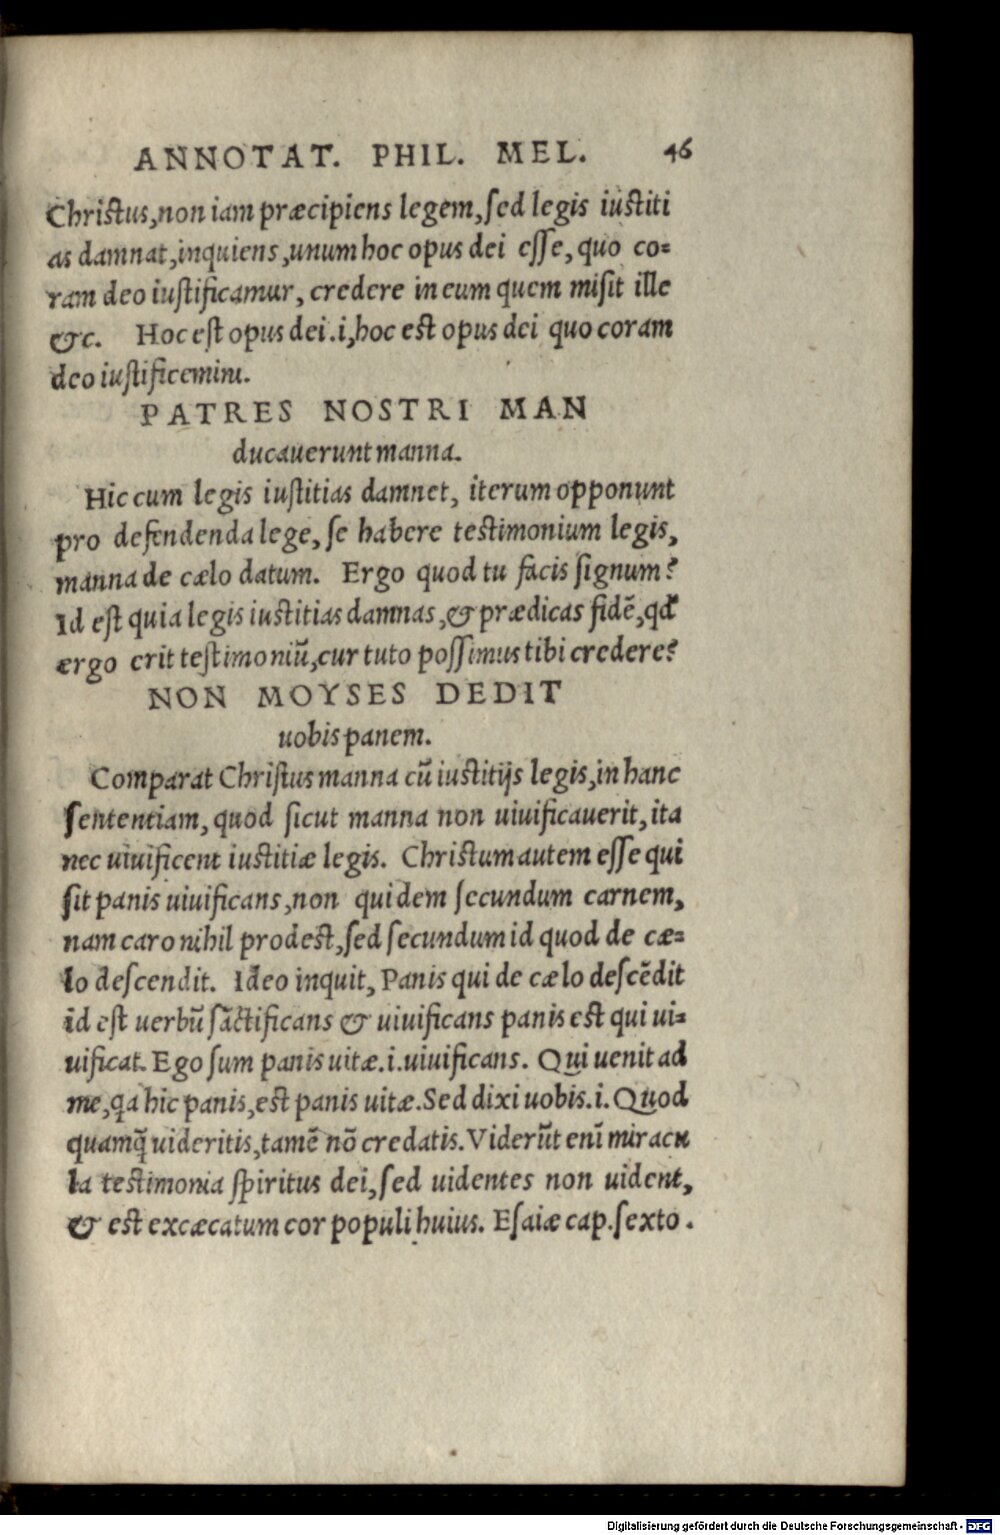 ANNOTAT. PHIL. MEL. 46
Christus, non iam præcipiens legem, sed legis iustiti
as damnat, inquiens, unum hoc opus dei esse, quo co=
ram deo iustificamur, credere in eum quem misit ille
&c. Hoc est opus dei .i, hoc est opus dei quo coram
deo iustificemini.
PATRES NOSTRI MAN
ducauerunt manna.
Hic cum legis iustitias damnet, iterum opponunt
pro defendenda lege, se habere testimonium legis,
manna de cælo datum. Ergo quod tu facis signum?
Id est quia legis iustitias damnas, & prædicas fidē, qď
ærgo erit testimoniū, cur tuto possimus tibi credere?
NON MOYSES DEDIT
uobis panem.
Comparat Christus manna cū iustitijs legis, in hanc
sententiam, quod sicut manna non uiuificauerit, ita
nec uiuificent iustitiæ legis. Christum autem esse qui
sit panis uiuificans, non quidem secundum carnem,
nam caro nihil prodest, sed secundum id quod de cæ=
lo descendit. Ideo inquit, Panis qui de cælo descēdit
id est uerbū sāctificans & uiuificans panis est qui ui=
uificat. Ego sum panis uitæ .i. uiuificans. Qui uenit ad
me, qa hic panis, est panis uitæ. Sed dixi uobis .i. Quod
quamq̄ uideritis, tamē nō credatis. Viderūt enī miracu
la testimonia spiritus dei, sed uidentes non uident,
& est excæcatum cor populi huius. Esaiæ cap. sexto.
Digitalisierung gefördert durch die Deutsche Forschungsgemeinschaft - DFG